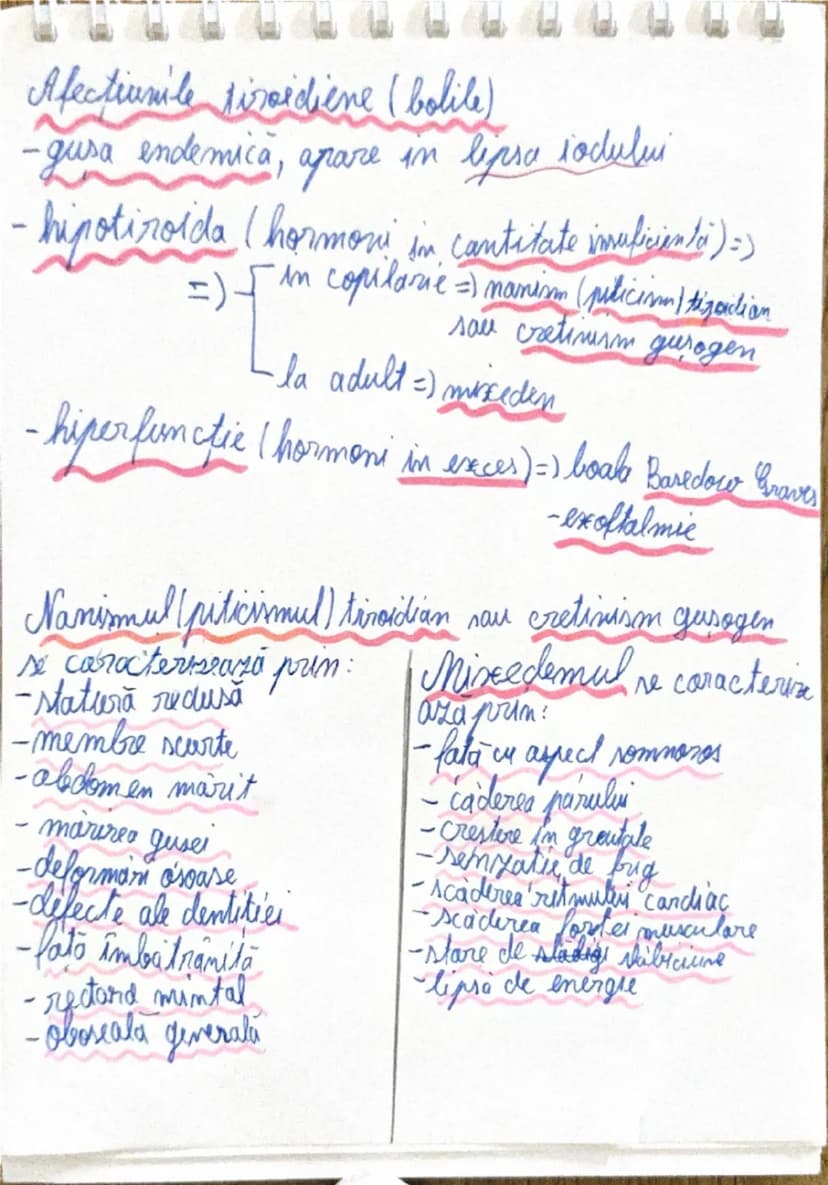 Afecțiunile tiroidiene (bolile)
- gușa endemică, apare in lipsa iodului
- hipotiroida (hormoni in cantitate insuficientă) =)
=) in copilarie =) nanism (piticism) tiroidian
sau cretinism gușogen
la adult =) mixeden
- hiperfuncție (hormoni in exces) =) boala Basedow Graves
- exoftalmie
Nanismul (piticismul) tiroidian sau cretinism gușogen
se caracterizează prin:
- statură redusă
- membre scurte
- abdomen mărit
- mărirea gusei
- deformări osoase
- defecte ale dentitiei
- față îmbătrânită
- rectard mintal
- oboseală generală
Mixedemul se caracterize
ază prin:
- fată cu aspect somnoros
- căderea părului
- crestere în greutate
- senzatie de frig
- scăderea ritmului cardiac
- scăderea fortei musculare
- stare de slăbiciune
- lipsă de energie